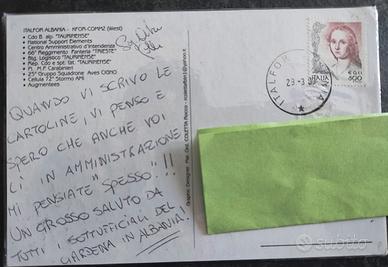 ITALFOR ALBANIA - KFOR-COMMZ (West)
Cdo B. alp. "TAURINENSE"
National Support Elements
Centro Amministrativo d'Intendenza
66° Reggimento Fanteria "TRIESTE"
Btg. Logistico "TAURINENSE"
Rep. Cdo e Spt. tat. "TAURINENSE"
P. M. P.F. Carabinieri
25° Gruppo Squadrone Aves CIGNO
Cellula 72° Stormo AMI
Augmentees
QUANDO VI SCRIVO LE
CARTOLINE, VI PENSO E
SPERO CHE ANCHE VOI
LÌ IN AMMINISTRAZIONE
MI PENSIATE "SPESSO"!!
UN GROSSO SALUTO DA
TUTTI I SOTTUFFICIALI DEL
IN ALBANIA!
ITALIA
€0,41
800
ITALFOR
subito